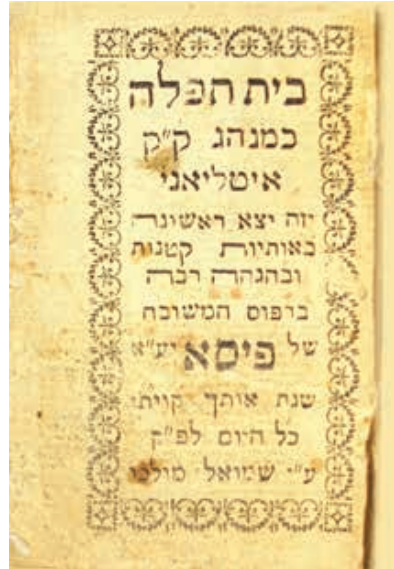 בית תפלה
כמנהג ק״ק
איטליאני
וזה יצא ראשונה
באותיות קטנות
ובהגהה רבה
בדפוס המשובח
של פיסא יע״א
שנת אותך קויתי
כל היום לפ״ק
ע״י שמואל מולכו